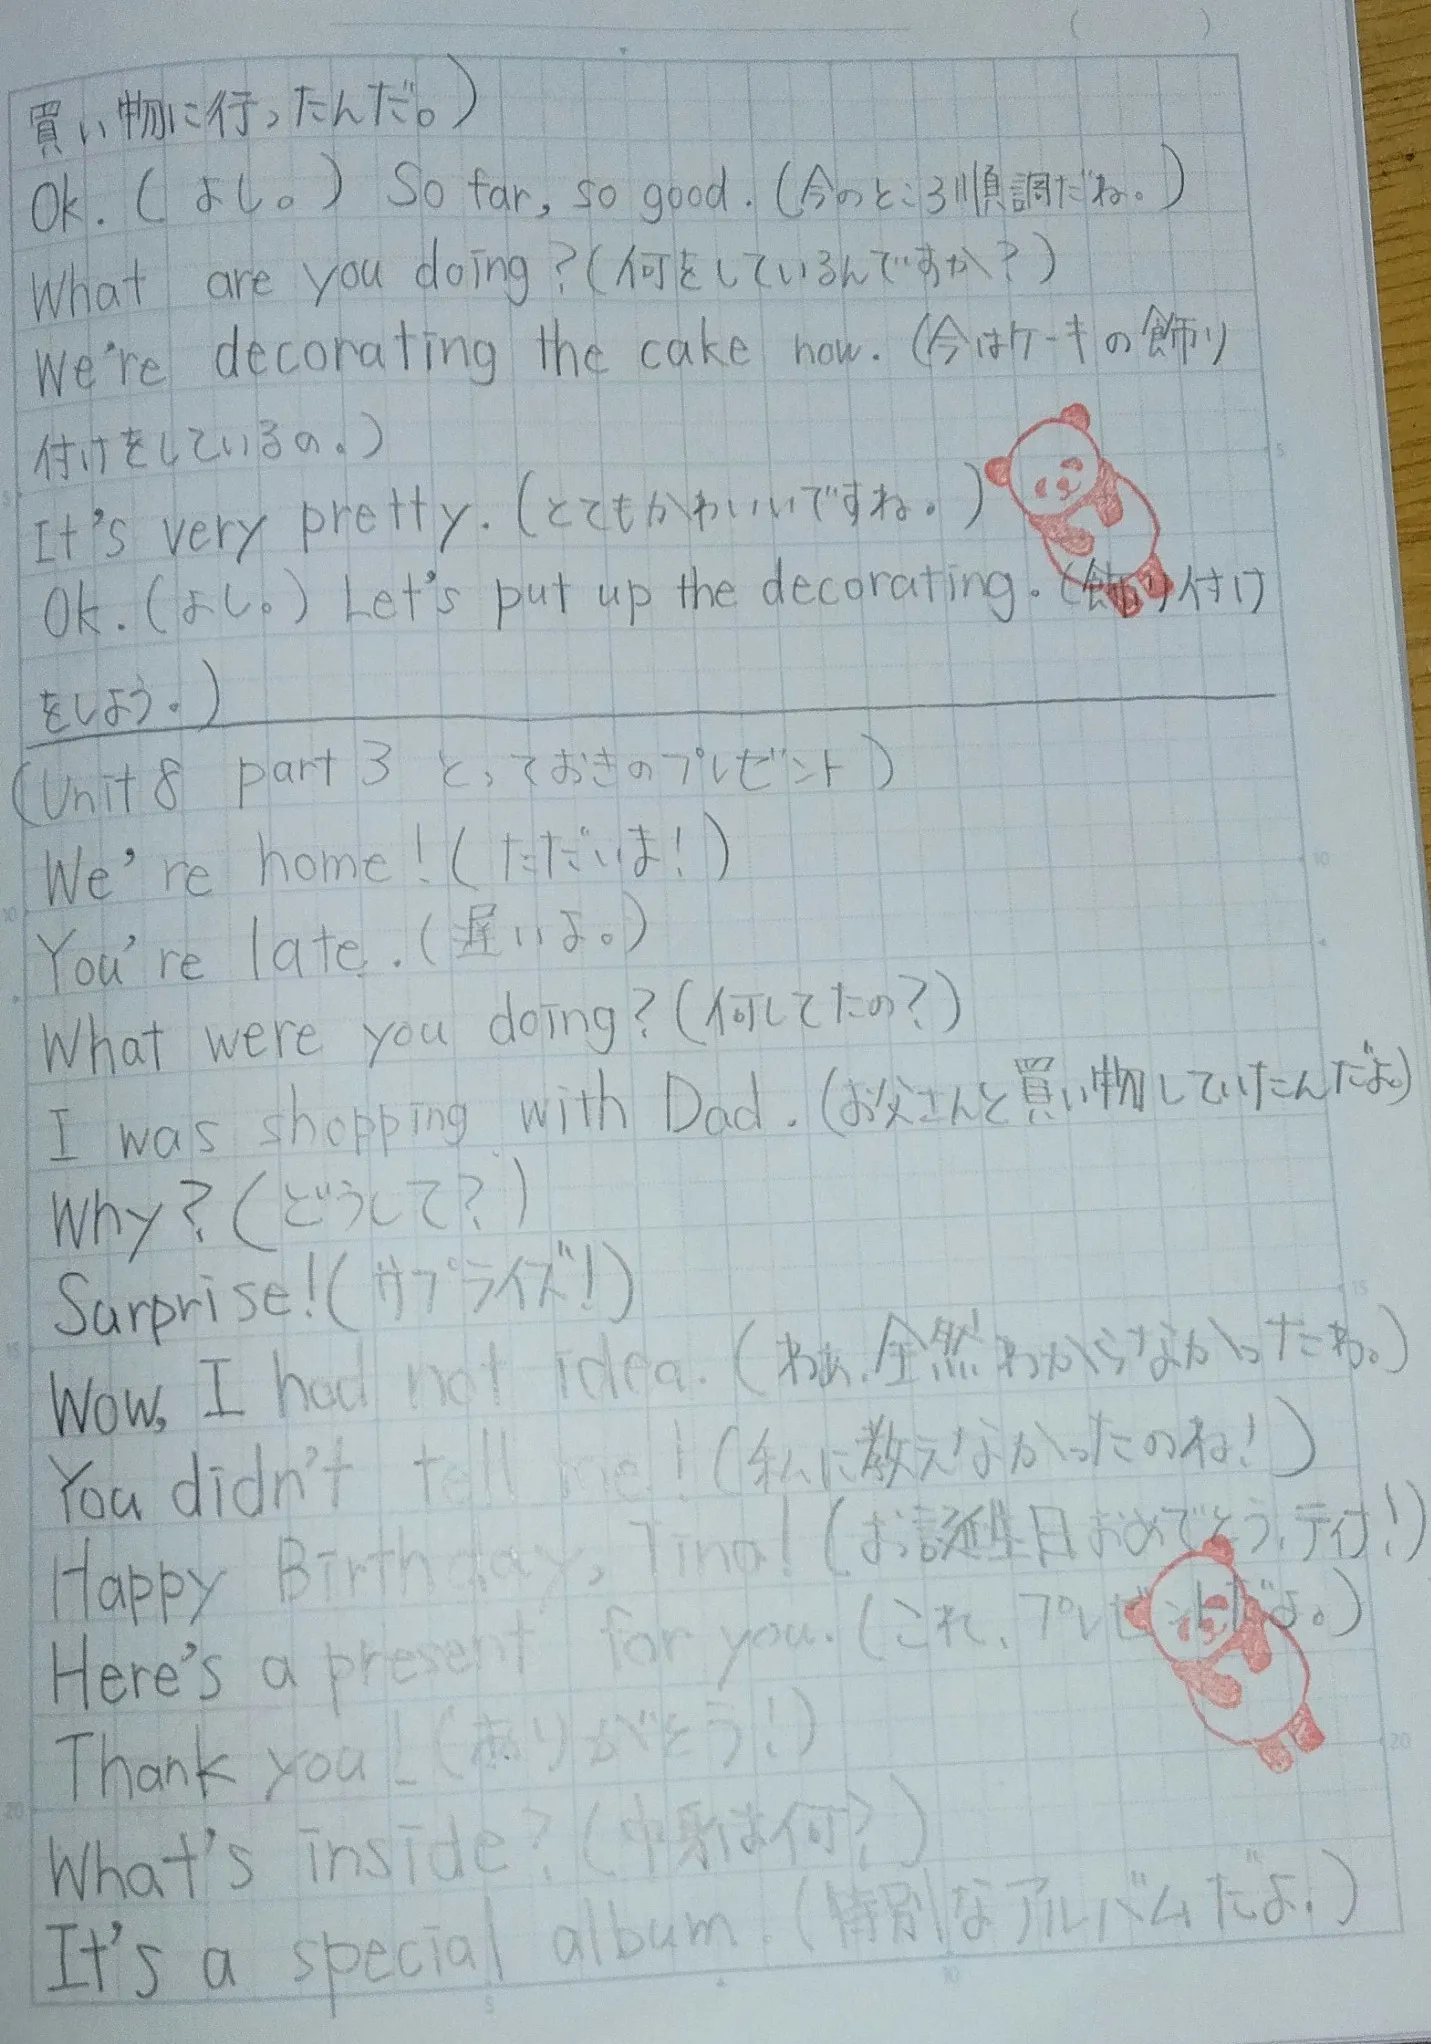 買い物に行ったんだ。)
Ok. (よし。) So far, so good. (今のところ順調だね。)
What are you doing? (何をしているんですか?)
We're decorating the cake now. (今はケーキの飾り
付けをしているの。)
It's very pretty. (とてもかわいいですね。)
Ok. (よし。) Let's put up the decorating. (飾り付け
をしよう。)
(Unit 8 part 3 とっておきのプレゼント)
We're home! (ただいま!)
You're late. (遅いよ。)
What were you doing? (何してたの?)
I was shopping with Dad. (お父さんと買い物していたんだよ。)
Why? (どうして?)
Surprise! (サプライズ!)
Wow, I had not idea. (わぁ、全然わからなかったわ。)
You didn't tell me! (私に教えなかったのね!)
Happy Birthday, Tina! (お誕生日おめでとう、ティナ!)
Here's a present for you. (これ、プレゼントだよ。)
Thank you! (ありがとう!)
What's inside? (中身は何?)
It's a special album. (特別なアルバムだよ。)